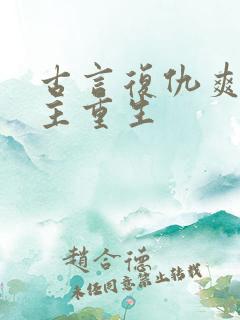 古言復仇爽
主重生
趙合德
未经同意禁止转载